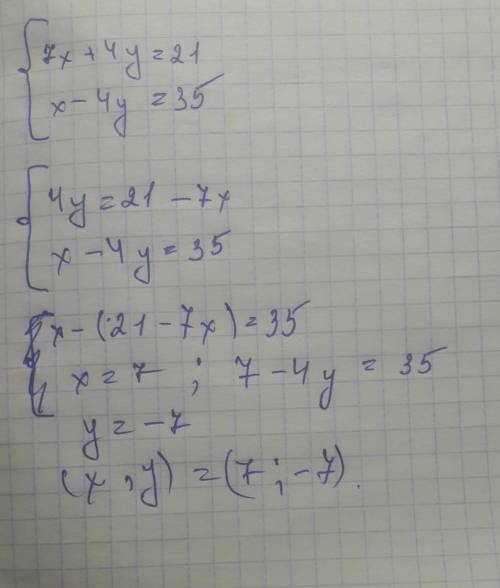 7x + 4y = 21
x - 4y = 35
4y = 21 - 7x
x - 4y = 35
x - (21 - 7x) = 35
x = 7 ; 7 - 4y = 35
y = -7
(x , y) = (7 ; -7).